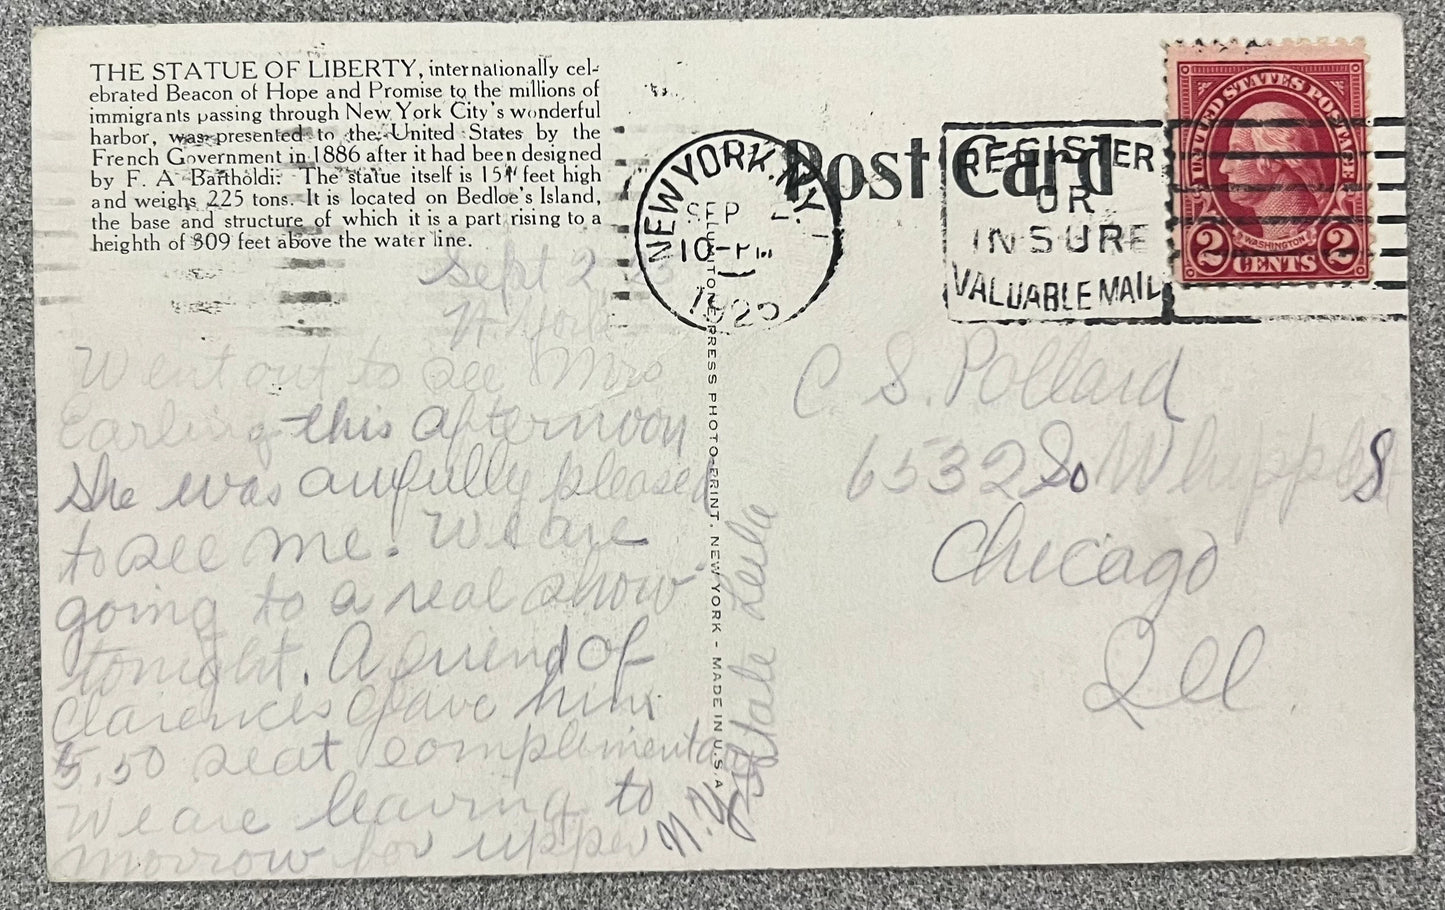 THE STATUE OF LIBERTY, internationally cel-
ebrated Beacon of Hope and Promise to the millions of
immigrants passing through New York City's wonderful
harbor, was presented to the United States by the
French Government in 1886 after it had been designed
by F. A Bartholdi. The statue itself is 151 feet high
and weighs 225 tons. It is located on Bedloe's Island,
the base and structure of which it is a part rising to a
heighth of 309 feet above the water line.
Sept 2
N. York
Went out to see Mrs
Earling this afternoon
She was awfully pleased
to see me. We are
going to a real show
tonight. A friend of
Clarences gave him
5.50 seat complimentary
We are leaving to
morrow for upper
N.Y. state Leila
LUMITONE PRESS PHOTO-PRINT. NEW YORK - MADE IN U.S.A
Post Card
NEW YORK, N.Y.
SEP
10-PM
REGISTER
OR
INSURE
VALUABLE MAIL
UNITED STATES POSTAGE
WASHINGTON
2 CENTS 2
C S. Pollard
6532 So Whipple S
Chicago
Ill.